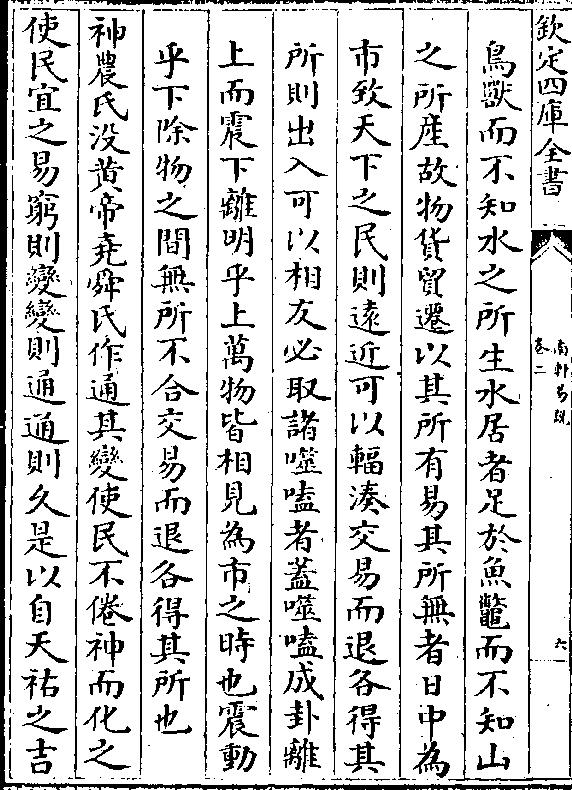 欽定四庫全書
南軒易說
卷二
六
鳥獸而不知水之所生水居者足於魚鼈而不知山
之所産故物貨貿遷以其所有易其所無者日中為
市致天下之民則遠近可以輻湊交易而退各得其
所則出入可以相友必取諸噬嗑者蓋噬嗑成卦離
上而震下離明乎上萬物皆相見為市之時也震動
乎下除物之間無所不合交易而退各得其所也
神農氏没黄帝堯舜氏作通其變使民不倦神而化之
使民宜之易窮則變變則通通則久是以自天祐之吉